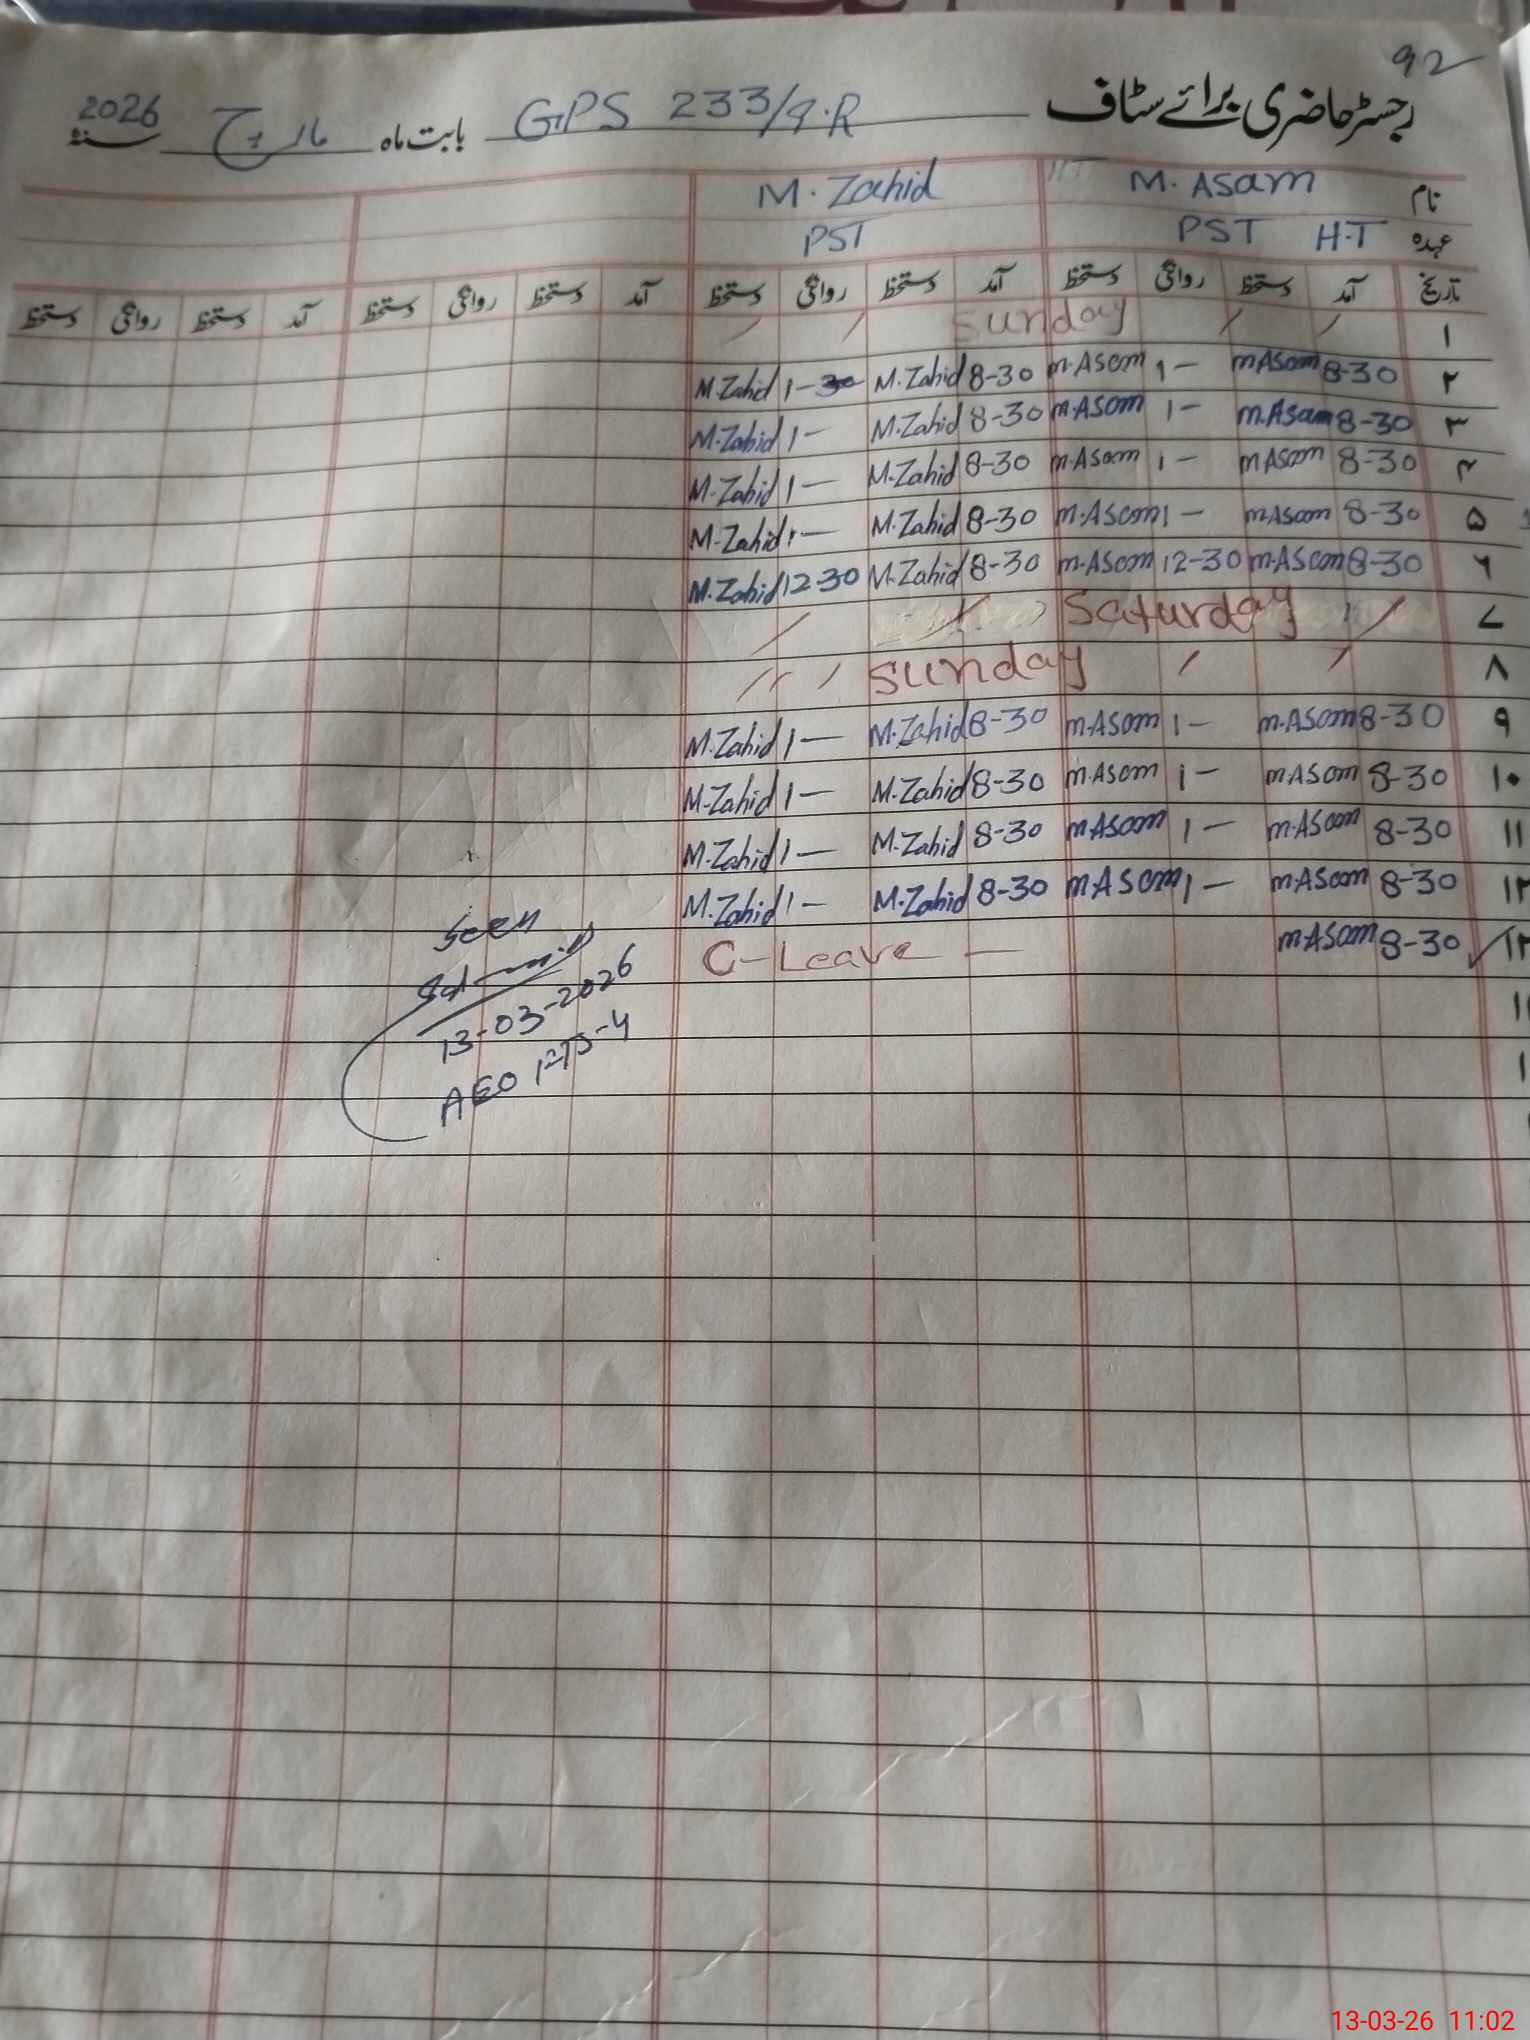 92
رجسٹر حاضری برائے سٹاف GPS 233/9.R بابت ماہ مارچ 2026 سنہ
نام M. Asam M. Zahid
عہدہ H.T PST PST
تاریخ آمد دستخط روانگی دستخط آمد دستخط روانگی دستخط آمد دستخط روانگی دستخط آمد دستخط روانگی دستخط
۱ Sunday
۲ 8-30 M.Asam 1- M.Asam 8-30 M.Zahid 1- M.Zahid
۳ 8-30 M.Asam 1- M.Asam 8-30 M.Zahid 1- M.Zahid
۴ 8-30 M.Asam 1- M.Asam 8-30 M.Zahid 1- M.Zahid
۵ 8-30 M.Asam 1- M.Asam 8-30 M.Zahid 1- M.Zahid
۶ 8-30 M.Asam 12-30 M.Asam 8-30 M.Zahid 12-30 M.Zahid
۷ Saturday
۸ Sunday
۹ 8-30 M.Asam 1- M.Asam 8-30 M.Zahid 1- M.Zahid
۱۰ 8-30 M.Asam 1- M.Asam 8-30 M.Zahid 1- M.Zahid
۱۱ 8-30 M.Asam 1- M.Asam 8-30 M.Zahid 1- M.Zahid
۱۲ 8-30 M.Asam 1- M.Asam 8-30 M.Zahid 1- M.Zahid
۱۳ 8-30 M.Asam C-Leave -
Seen
13-03-2026
AEO
13-03-26 11:02